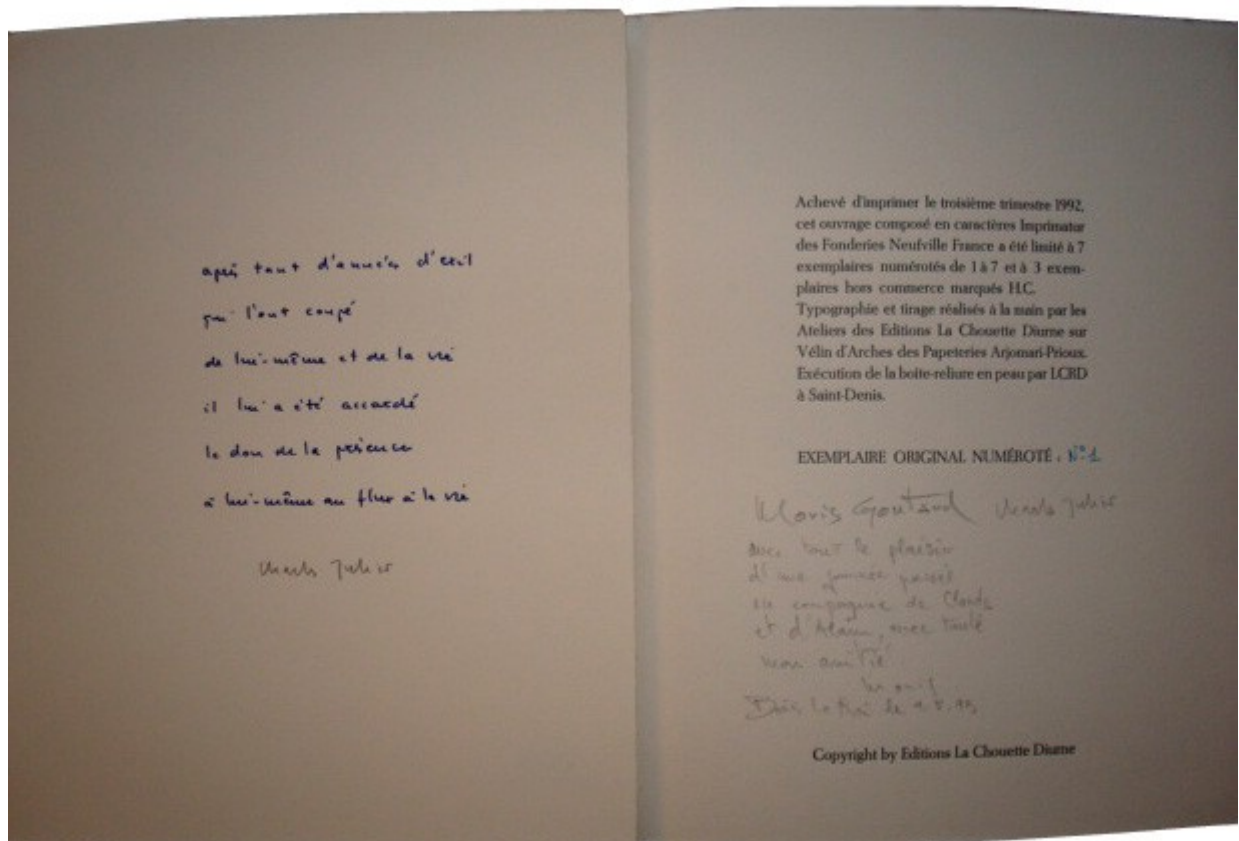 après tant d'années d'exil
qui l'ont coupé
de lui-même et de la vie
il lui a été accordé
le don de la présence
à lui-même au flux à la vie
Charles Juliet
Achevé d'imprimer le troisième trimestre 1992,
cet ouvrage composé en caractères Imprimatur
des Fonderies Neufville France a été limité à 7
exemplaires numérotés de 1 à 7 et à 3 exem-
plaires hors commerce marqués H.C.
Typographie et tirage réalisés à la main par les
Ateliers des Editions La Chouette Diurne sur
Vélin d'Arches des Papeteries Arjomari-Prioux.
Exécution de la boîte-reliure en peau par LCRD
à Saint-Denis.
EXEMPLAIRE ORIGINAL NUMÉROTÉ : N° 1
Goutard Charles Juliet
avec tout le plaisir
d'une journée passée
en compagnie de Claude
et d'Alain, avec toute
mon amitié
le
Copyright by Editions La Chouette Diurne